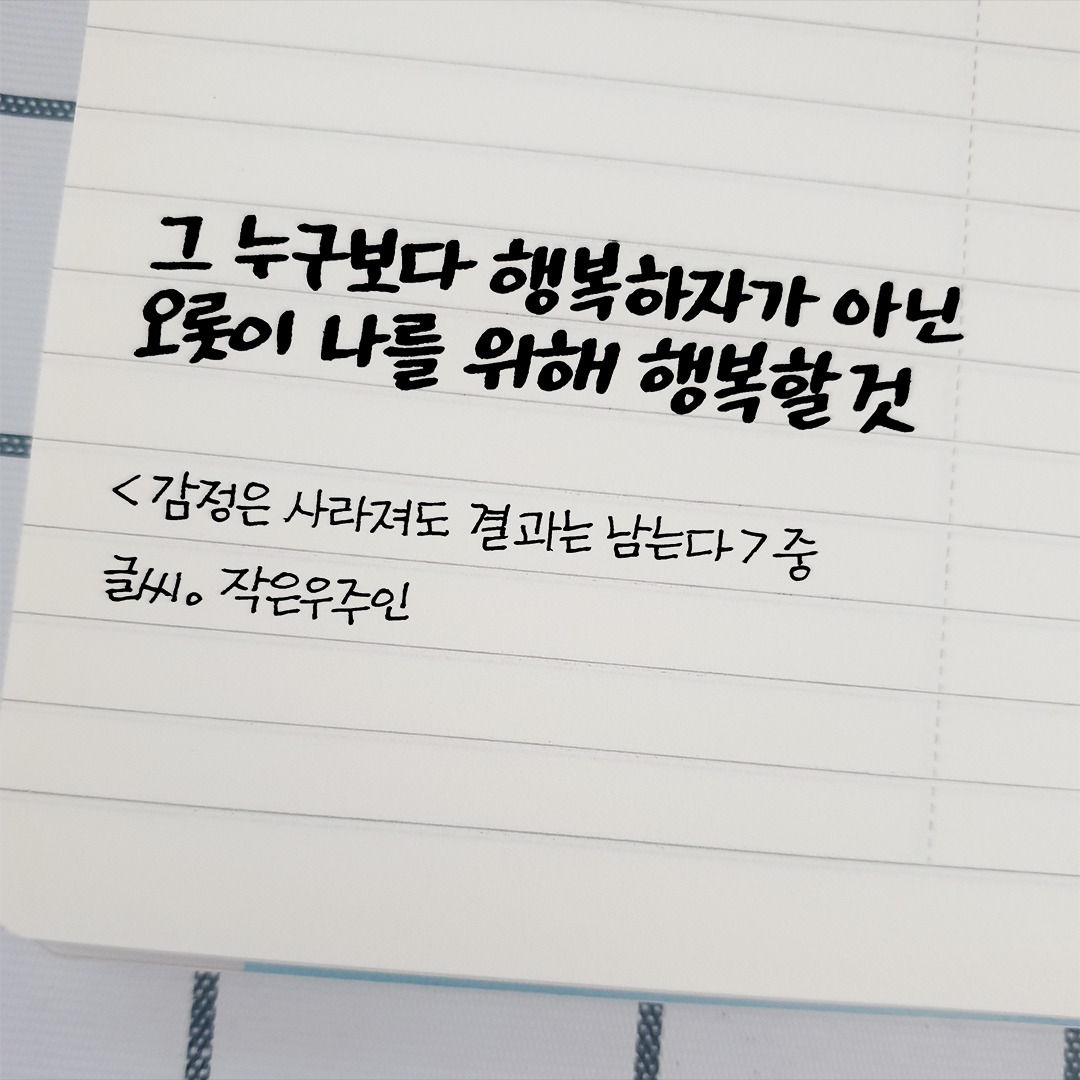 그 누구보다 행복하자가 아닌
오롯이 나를 위해 행복할것
<감정은 사라져도 결과는 남는다> 중
글씨。 작은우주인